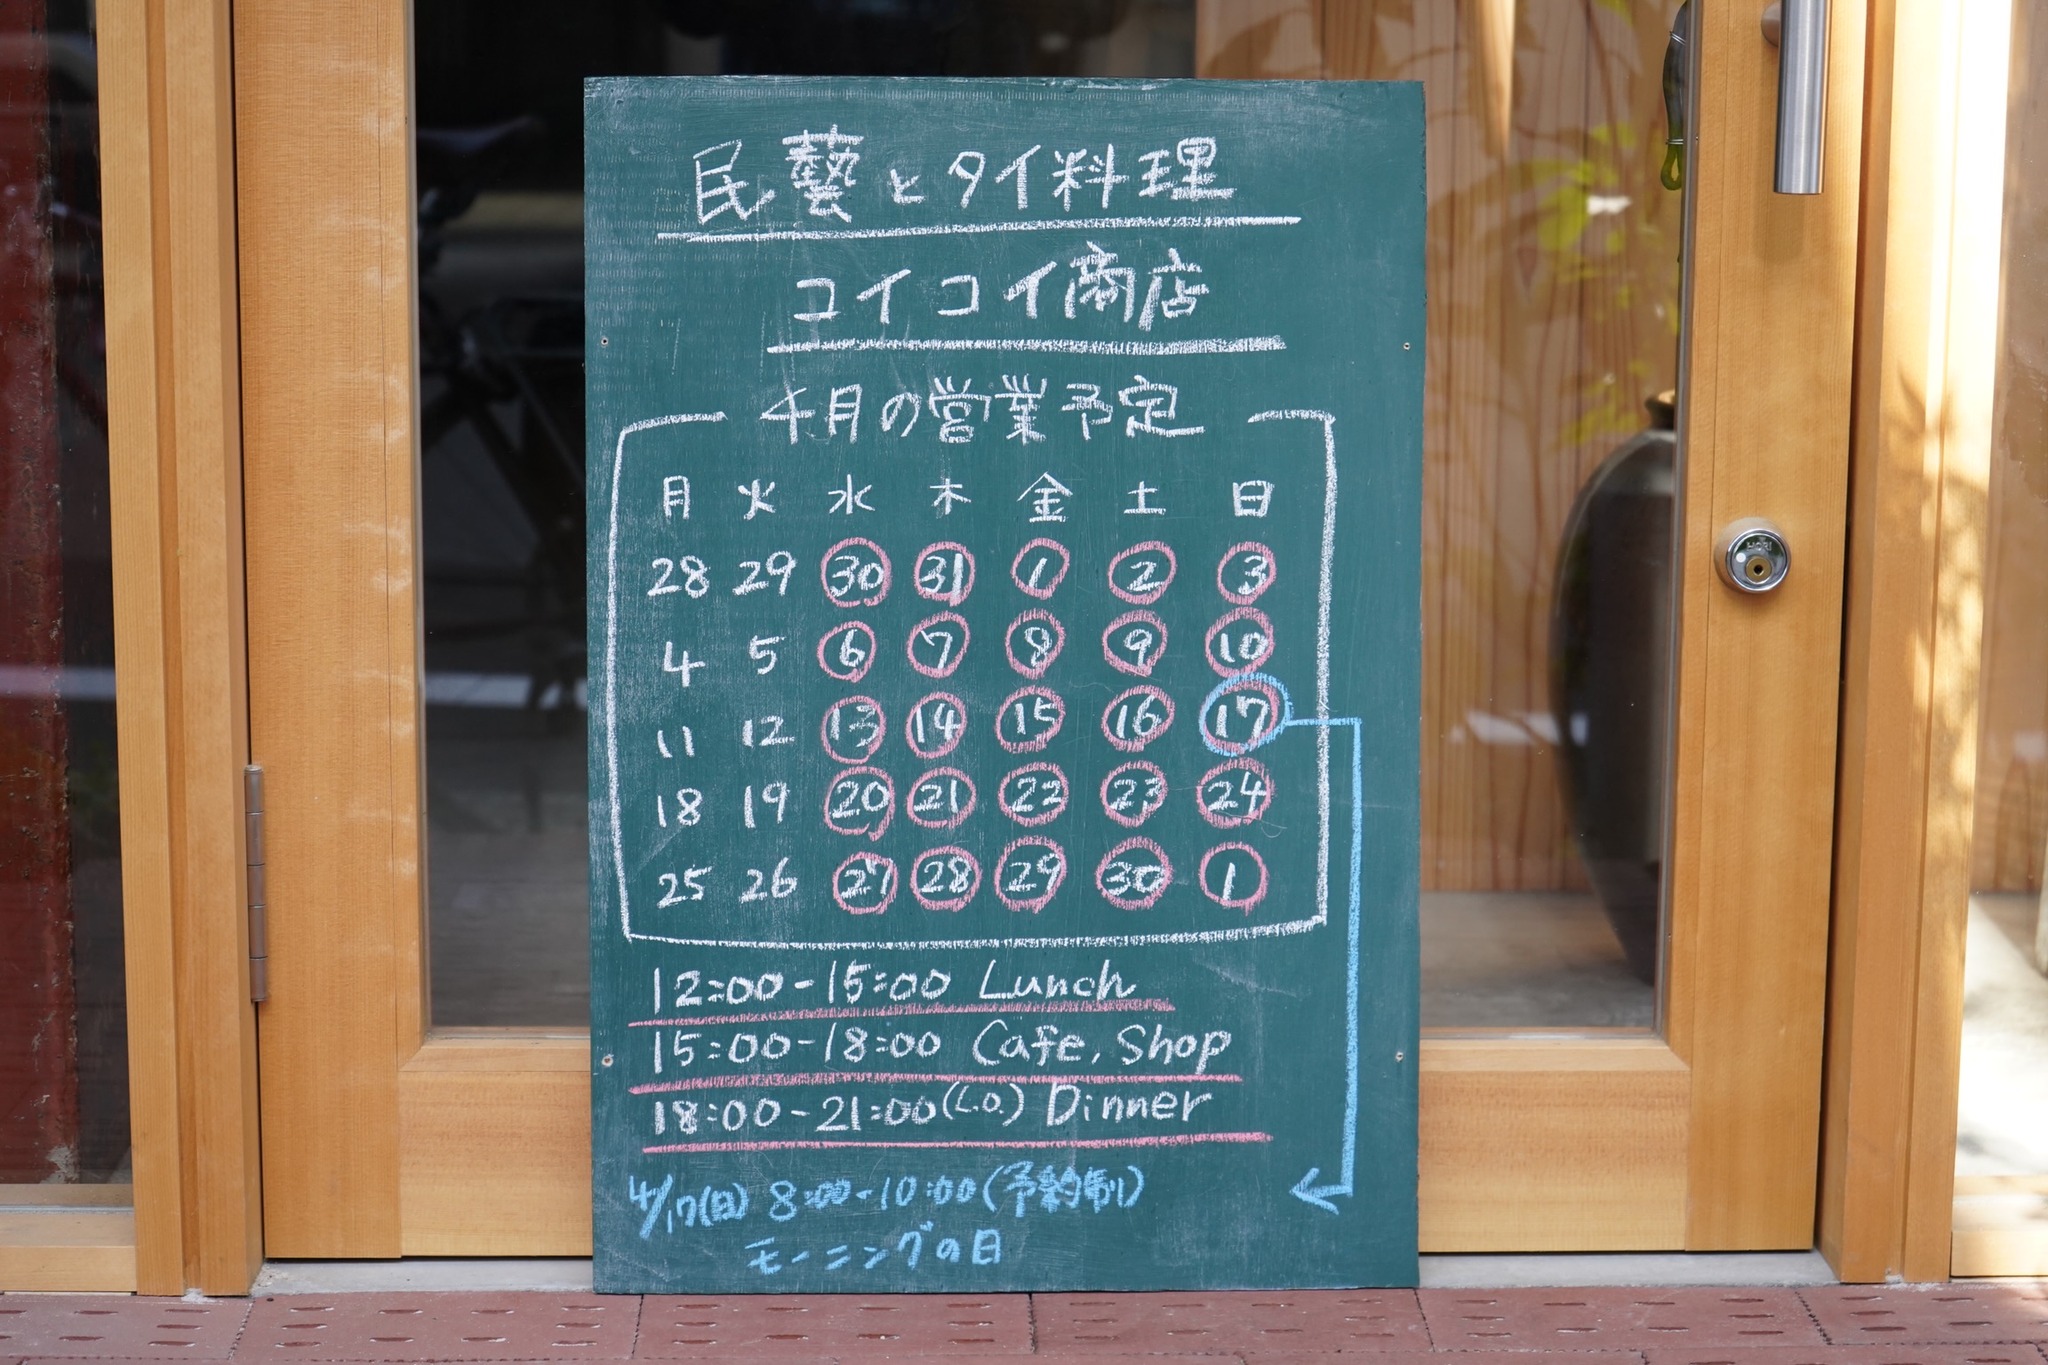 民藝とタイ料理
ユイコイ商店
4月の営業予定
月 火 水 木 金 土 日
28 29 30 31 1 2 3
4 5 6 7 8 9 10
11 12 13 14 15 16 17
18 19 20 21 22 23 24
25 26 27 28 29 30 1
12:00-15:00 Lunch
15:00-18:00 Cafe, Shop
18:00-21:00(L.O.) Dinner
4/17(日) 8:00-10:00(予約制)
モーニングの日